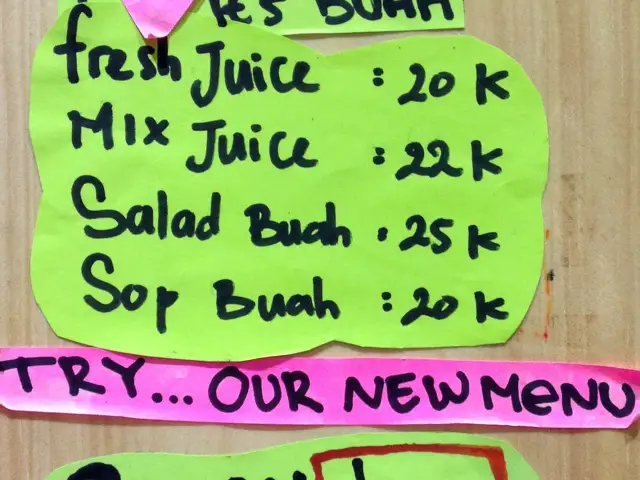 BUAH
fresh Juice : 20 K
MIX Juice : 22 K
Salad Buah : 25 K
Sop Buah : 20 K
TRY... OUR NEW MeNU